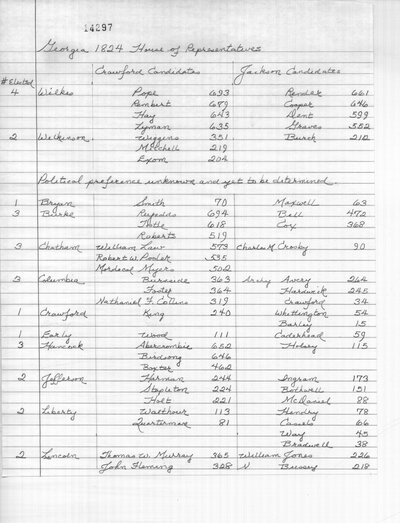 14297
Georgia 1824 House of Representatives
Crawford Candidates Jackson Candidates
# Elected
4 Wilkes Pope 693 Render 661
Rembert 679 Cooper 646
Hay 643 Dent 599
Lyman 635 Graves 552
2 Wilkerson Wiggins 351 Burch 210
Mitchell 219
Exom 204
Political preference unknown and yet to be determined.
1 Bryan Smith 70 Maxwell 63
3 Burke 694 Bell 472
618 Cox 368
Roberts 519
3 Chatham William Law 573 Charles M Crosby 90
Robert W. Pooler 535
Mordecai Myers 502
3 Columbia Burnside 363 Archy Avery 264
Foster 364 Hardwick 245
Nathaniel F. Collins 319 Crawford 34
1 Crawford King 240 Whittington 54
Barley 15
1 Early Wood 111 Caderhead 59
3 Hancock Abercrombie 652 Holsey 115
Birdsong 646
Baxter 462
2 Jefferson Harman 244 Ingram 173
Stapleton 224 Bothwell 151
Holt 221 McDaniel 88
2 Liberty Walthour 113 Hendry 78
Quarterman 81 Cassels 66
Way 45
Bradwell 38
2 Lincoln Thomas W. Murray 365 William Jones 226
John Fleming 328 N Bussey 218